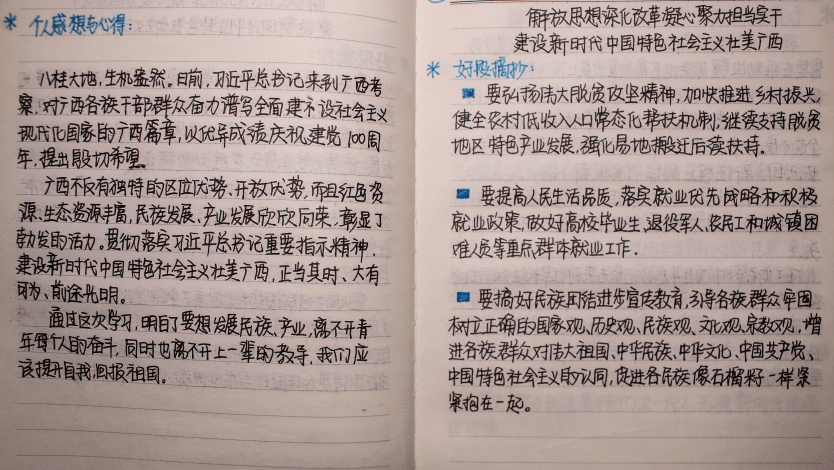 * 个人感想与心得：
八桂大地，生机盎然。日前，习近平总书记来到广西考
察，对广西各族干部群众奋力谱写全面建设社会主义
现代化国家的广西篇章，以优异成绩庆祝建党100周
年，提出殷切希望。
广西不仅有独特的区位优势、开放优势，而且红色资
源、生态资源丰富，民族发展、产业发展欣欣向荣，彰显了
勃发的活力。贯彻落实习近平总书记重要指示精神，
建设新时代中国特色社会主义壮美广西，正当其时、大有
可为、前途光明。
通过这次学习，明白了要想发展民族、产业，离不开青
年每个人的奋斗，同时也离不开上一辈的教导，我们应
该提升自我，回报祖国。
解放思想深化改革凝心聚力担当实干
建设新时代中国特色社会主义壮美广西
* 好段摘抄：
要弘扬伟大脱贫攻坚精神，加快推进乡村振兴，
健全农村低收入人口常态化帮扶机制，继续支持脱贫
地区特色产业发展，强化易地搬迁后续扶持。
要提高人民生活品质，落实就业优先战略和积极
就业政策，做好高校毕业生、退役军人、农民工和城镇困
难人员等重点群体就业工作.
要搞好民族团结进步宣传教育，引导各族群众牢固
树立正确的国家观、历史观、民族观、文化观、宗教观，增
进各族群众对伟大祖国、中华民族、中华文化、中国共产党、
中国特色社会主义的认同，促进各民族像石榴籽一样紧
紧抱在一起。